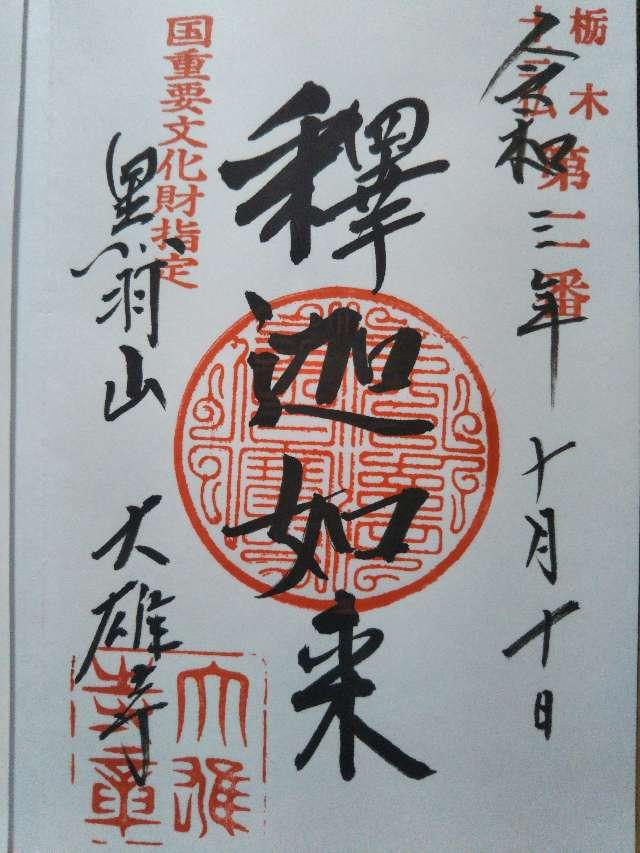 栃木
十三仏
第二番
令和三年十月十日
釋迦如来
国重要文化財指定
黒羽山 大雄寺
大雄
寺章